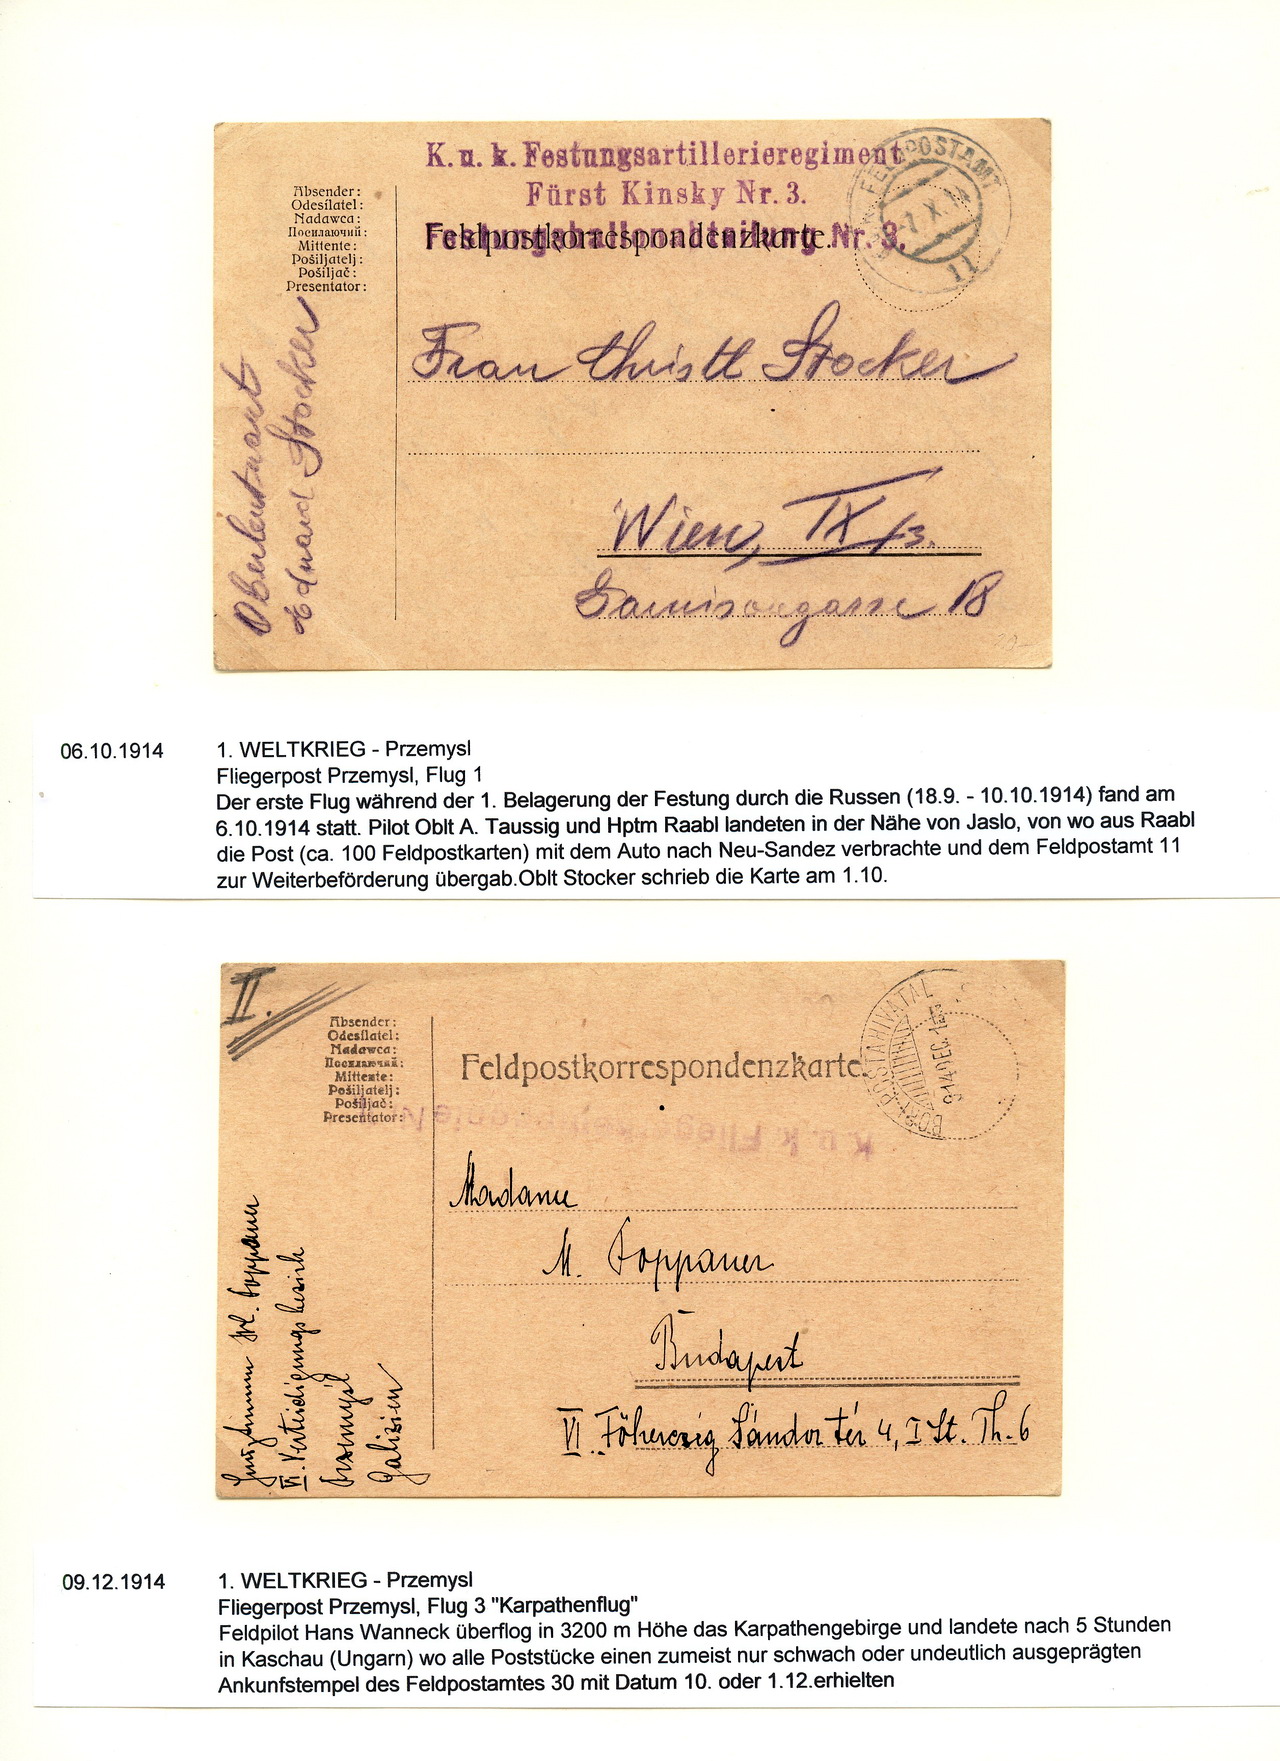 K. u. k. Festungsartillerieregiment
Fürst Kinsky Nr. 3.
Festungsballonabteilung Nr. 3.
Feldpostkorrespondenzkarte.
FELDPOSTAMT
7. X. 14
11
Absender:
Odesílatel:
Nadawca:
Посилаючий:
Mittente:
Pošiljatelj:
Pošiljač:
Presentator:
Oberleutnant
Eduard Stocker
Frau Christl Stocker
Wien, IX/3.
Garnisongasse 18
06.10.1914
1. WELTKRIEG - Przemysl
Fliegerpost Przemysl, Flug 1
Der erste Flug während der 1. Belagerung der Festung durch die Russen (18.9. - 10.10.1914) fand am
6.10.1914 statt. Pilot Oblt A. Taussig und Hptm Raabl landeten in der Nähe von Jaslo, von wo aus Raabl
die Post (ca. 100 Feldpostkarten) mit dem Auto nach Neu-Sandez verbrachte und dem Feldpostamt 11
zur Weiterbeförderung übergab.Oblt Stocker schrieb die Karte am 1.10.
II.
Absender:
Odesílatel:
Nadawca:
Посилаючий:
Mittente:
Pošiljatelj:
Pošiljač:
Presentator:
Feldpostkorrespondenzkarte.
POSTAHIVATAL
914 DEC.
K. u. k. Fliegerkompanie
Toppauer
VI. Verteidigungsbezirk
Przemysl
Galizien
Madame
M. Toppauer
Budapest
VI. Főherczig Sándor tér 4, I St. Th. 6
09.12.1914
1. WELTKRIEG - Przemysl
Fliegerpost Przemysl, Flug 3 "Karpathenflug"
Feldpilot Hans Wanneck überflog in 3200 m Höhe das Karpathengebirge und landete nach 5 Stunden
in Kaschau (Ungarn) wo alle Poststücke einen zumeist nur schwach oder undeutlich ausgeprägten
Ankunfstempel des Feldpostamtes 30 mit Datum 10. oder 1.12.erhielten